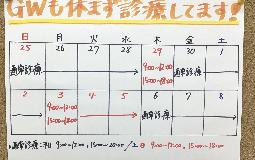 GWも休まず診療してます!
日 月 火 水 木 金 土
25 26 27 28 29 30 1
通常診療 9:00~12:00
15:00~18:00 通常診療
2 3 4 5 6 7 8
9:00~12:00
15:00~18:00 通常診療
9:00~12:00, 15:00~20:00 / 9:00~12:00, 15:00~18:00